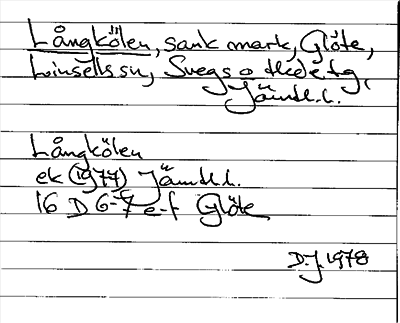 Långkölen, sank mark, Glöte,
Linsells sn, Svegs o Hede tg,
Jämtl.l.
Långkölen
ek (1977) Jämtl.l.
16 D 6-7 e-f Glöte
D.J. 1978